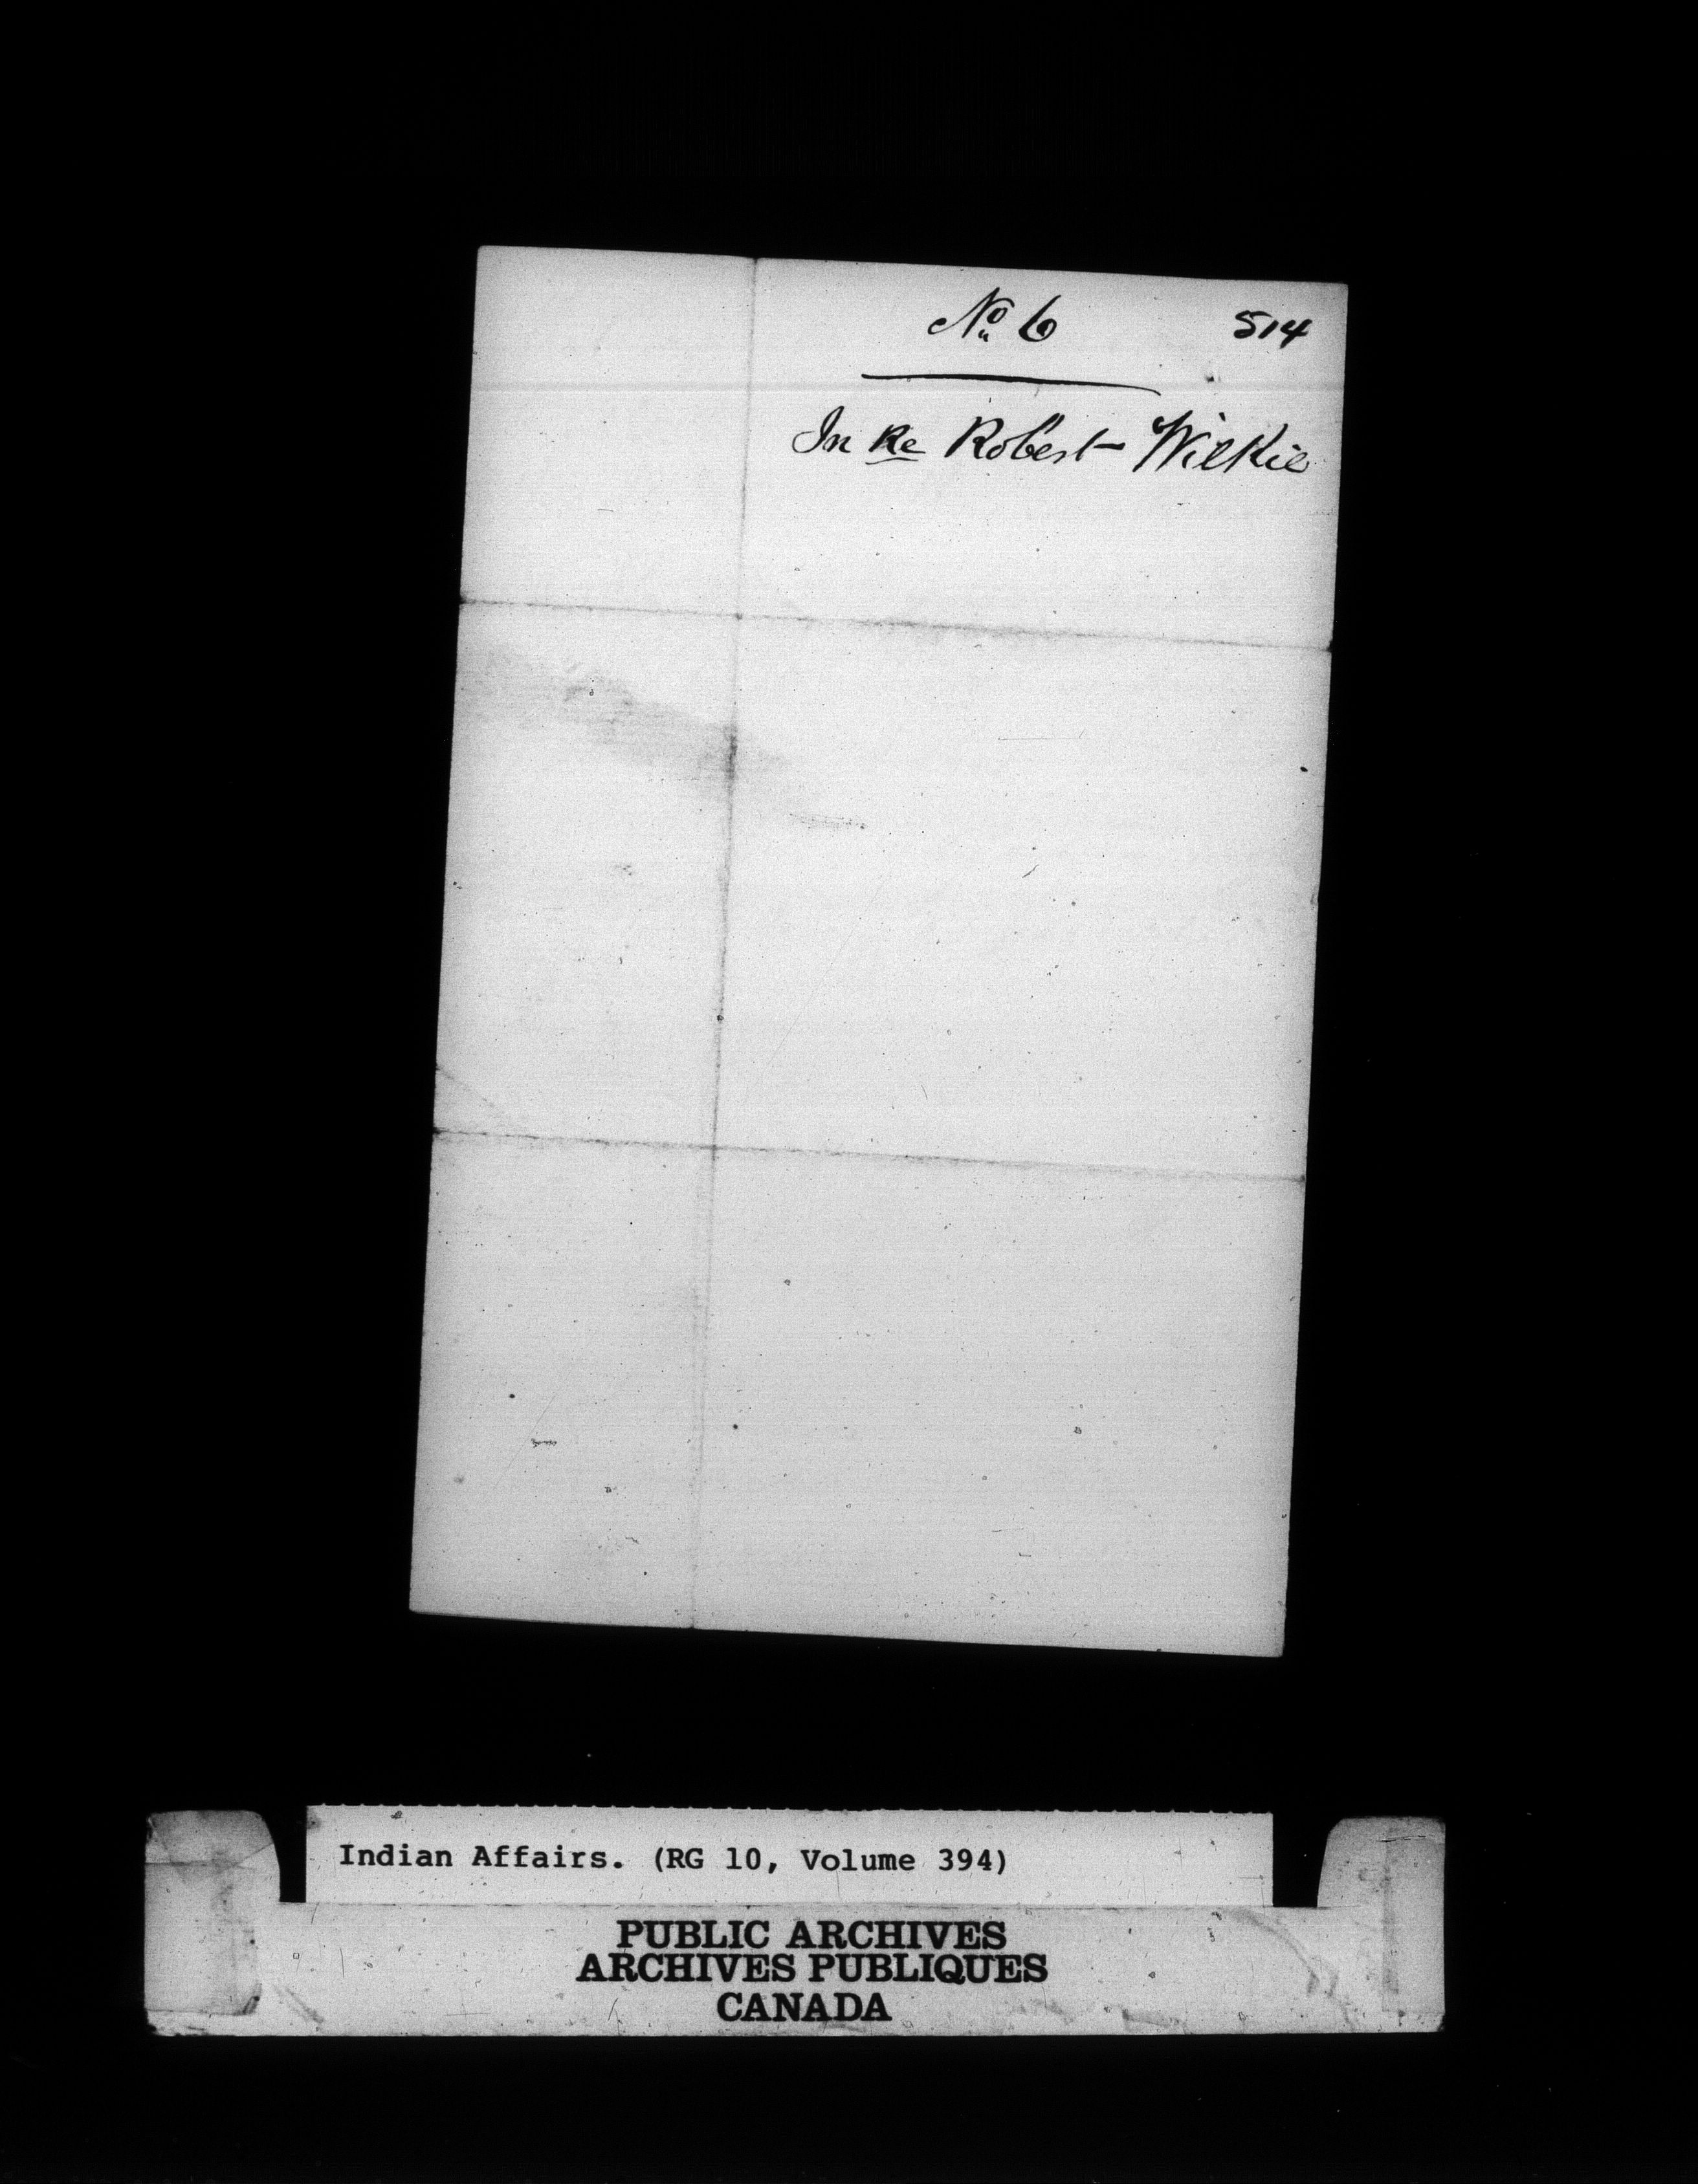 No 6 514
In Re Robert Wilkie
Indian Affairs. (RG 10, Volume 394)
PUBLIC ARCHIVES
ARCHIVES PUBLIQUES
CANADA